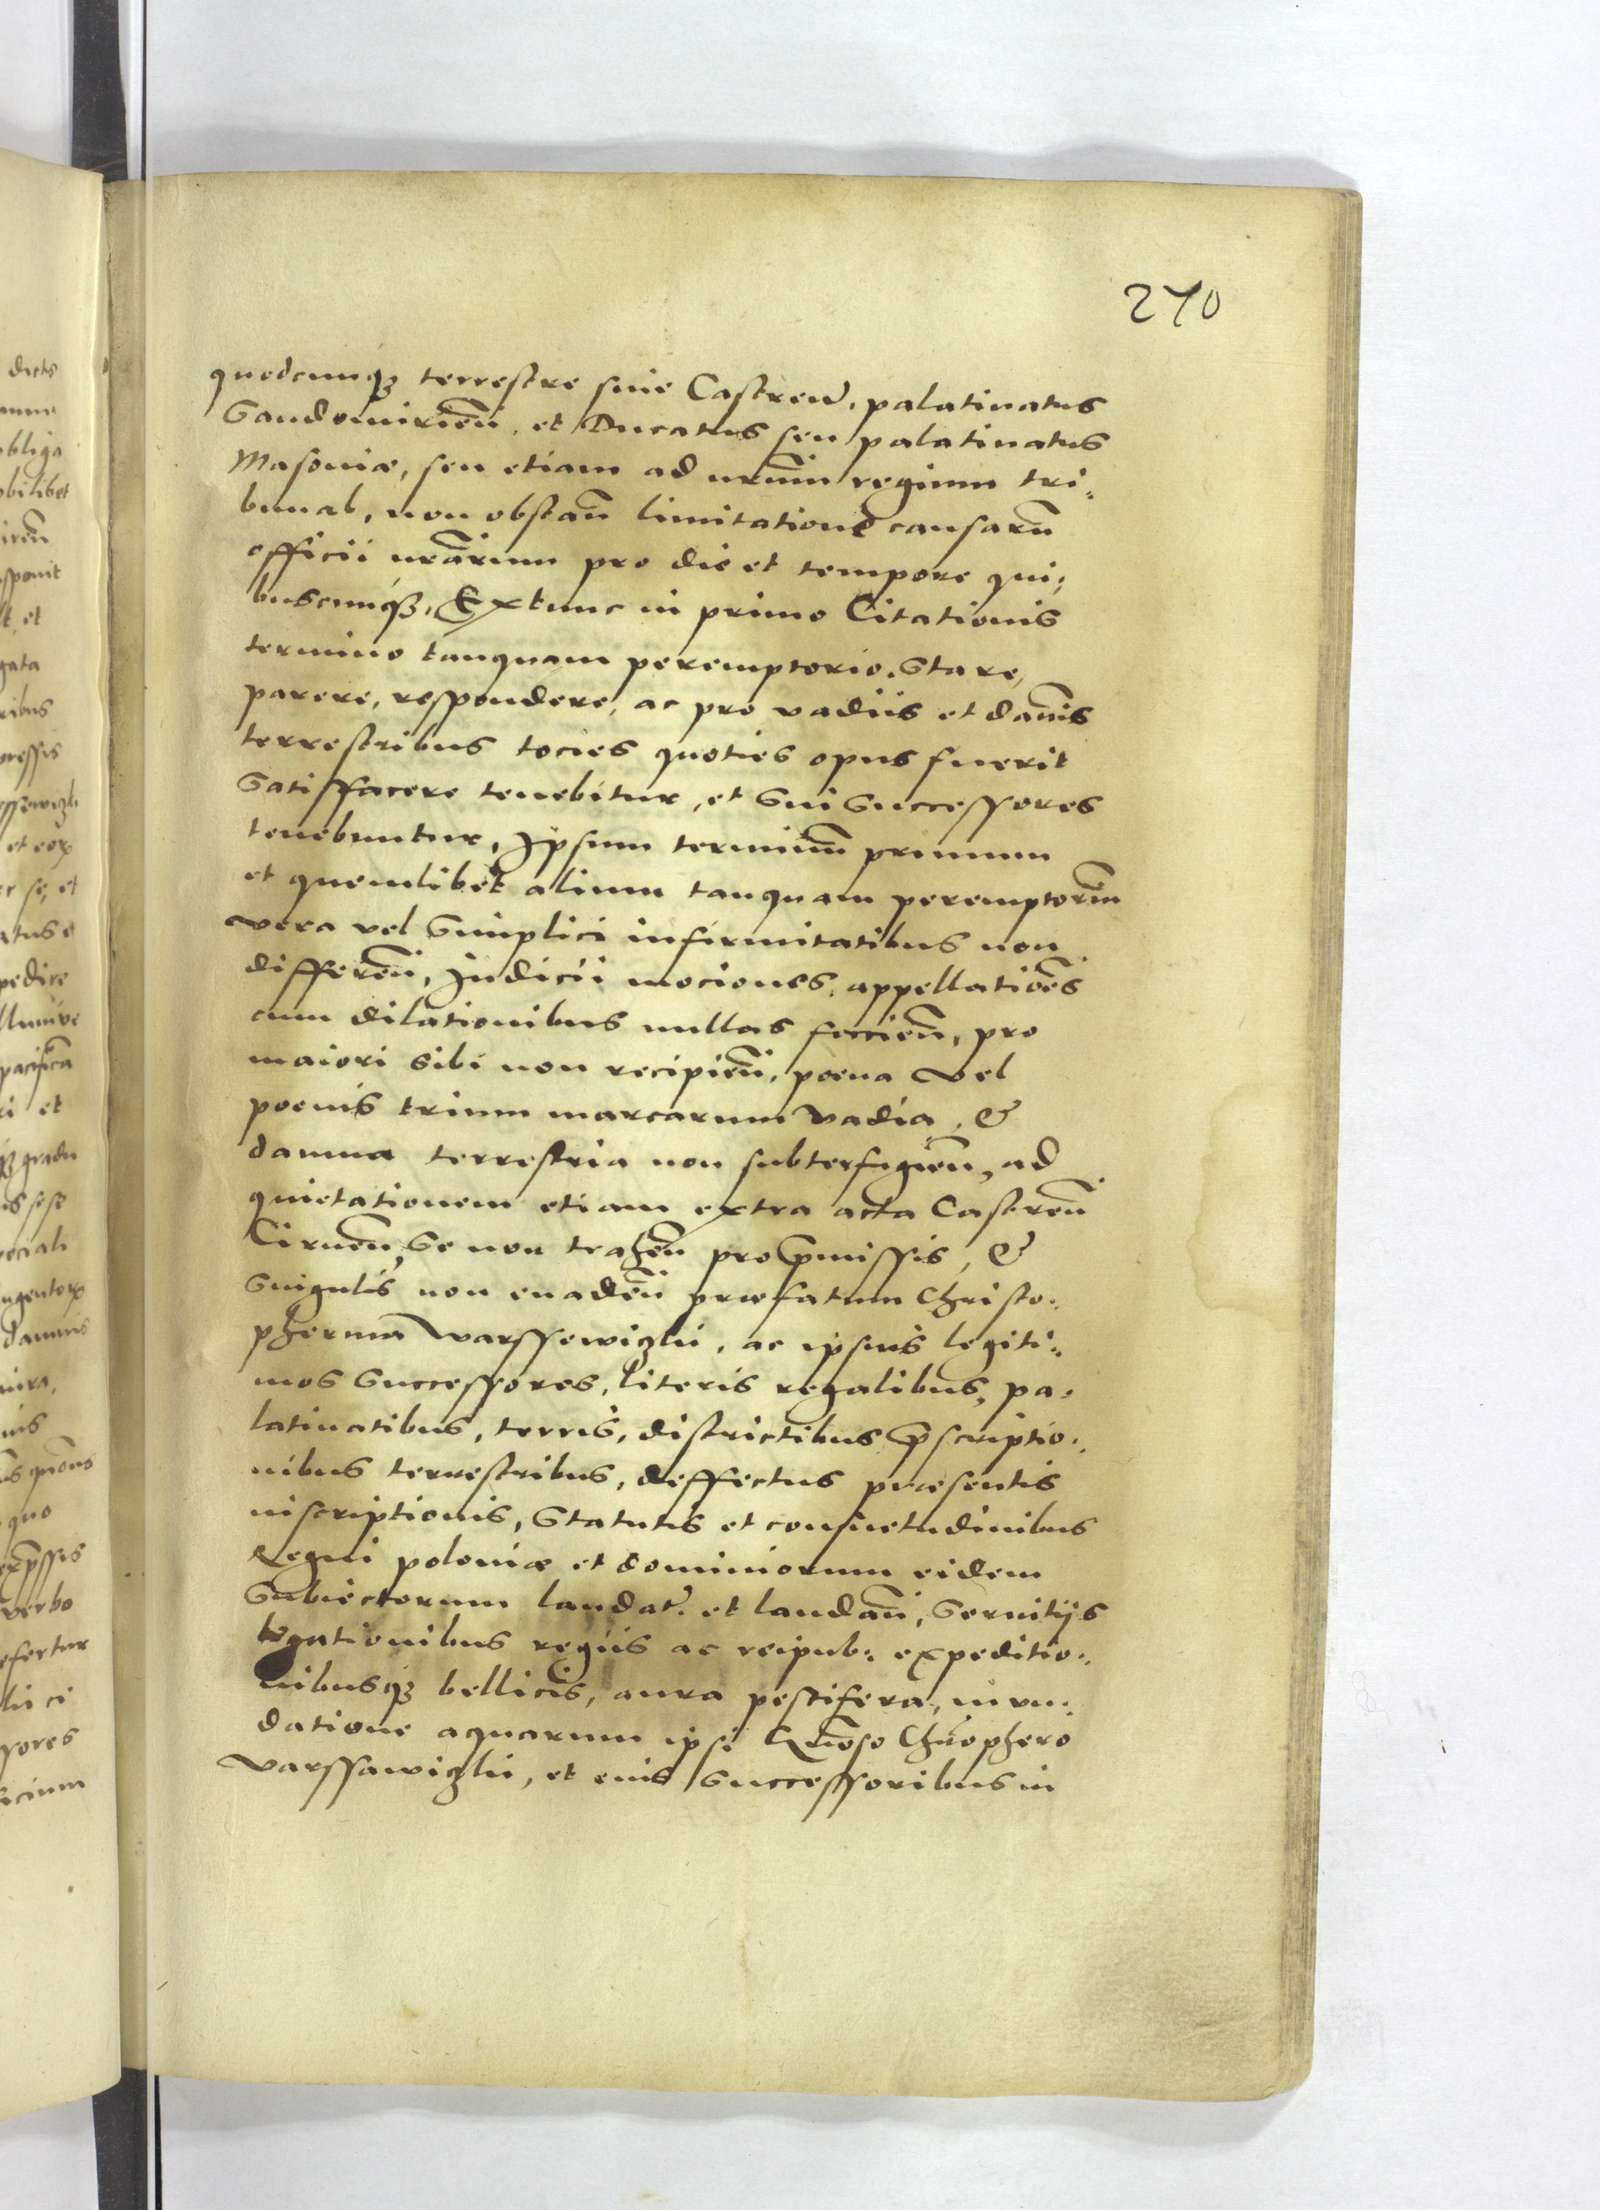 270
quodcunqȝ terrestre siue Castren̄, palatinatus
Sandomirien̄, et Ducatus seu palatinatus
Masoviæ, seu etiam ad nr̄um regium tri:
bunal, non obstan̄ limitatione causarū
officii nr̄arum pro die et tempore qui:
buscunqȝ, Extunc in primo Citationis
termino tanquam peremptorio, Stare,
parere, respondere, ac pro vadiis et dam̄is
terrestribus tocies quoties opus fuerit
Satisfacere tenebitur, et Sui Successores
tenebuntur, Ipsum terminū primum
et quemlibet alium tanquam peremptoriū
vera vel Simplici infirmitatibus non
differen̄, Judicii mociones, appellatiōes
cum dilationibus nullas facien̄, pro
maiori sibi non recipien̄, poena vel
poenis trium marcarum vadia, &
damna terrestria non subterfugien̄, ad
quietationem etiam extra acta Castren̄
Cirnen̄, Se non trahen̄ pro p̄missis, &
Singulis non euaden̄ præfatum Christo:
pherum Warssewiczki, ac ipsius legiti:
mos Successores, literis regalibus, pa:
latinatibus, terris, districtibus p̄scriptio:
nibus terrestribus, deffectus præsentis
inscriptionis, Statutis et consuetudinibus
Regni poloniæ et dominiorum eidem
Subiectorum laudat. et laudan̄, Seruitijs
legationibus regiis ac reipub: expeditio:
nibusqȝ bellicis, aura pestifera, inun:
datione aquarum ipsi Gn̄oso Chr̄ophero
Varssawiczki, et eius Successoribus in